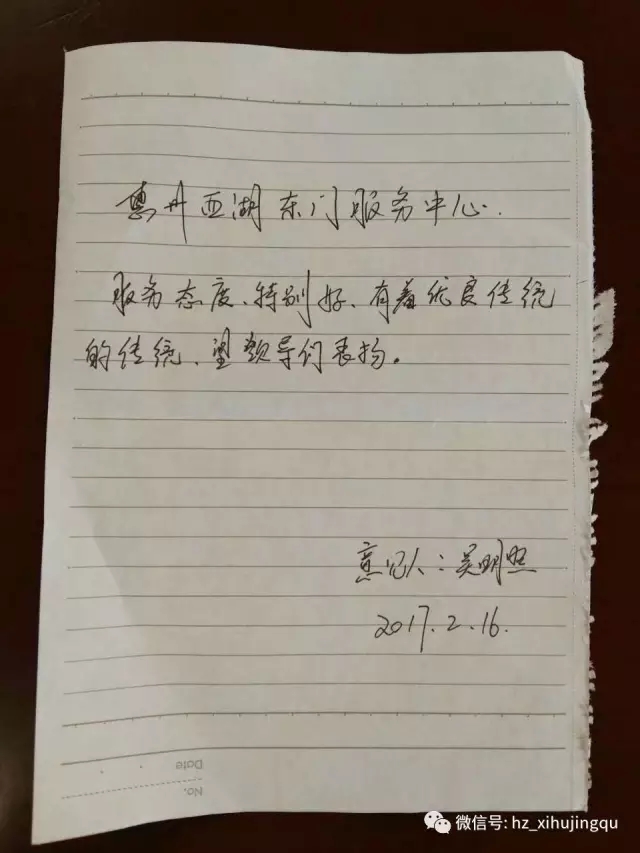 惠州西湖东门服务中心.
服务态度、特别好、有着优良传统
的传统、望领导们表扬。
意见人：吴明照
2017.2.16.
Date
No.
微信号: hz_xihujingqu